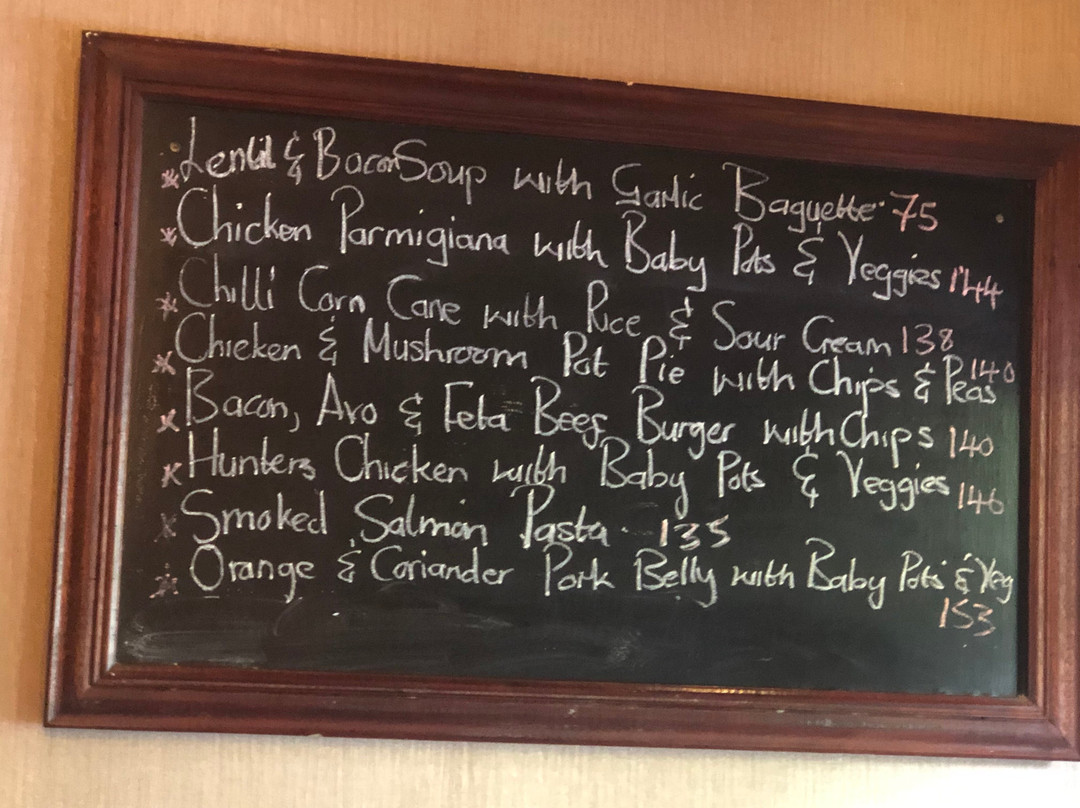 * Lentil & Bacon Soup with Garlic Baguette 75
* Chicken Parmigiana with Baby Pots & Veggies 144
* Chilli Corn Cane with Rice & Sour Cream 138
* Chicken & Mushroom Pot Pie with Chips & Peas 140
* Bacon, Avo & Feta Beef Burger with Chips 140
* Hunters Chicken with Baby Pots & Veggies 146
* Smoked Salmon Pasta 135
* Orange & Coriander Pork Belly with Baby Pots & Veg
153